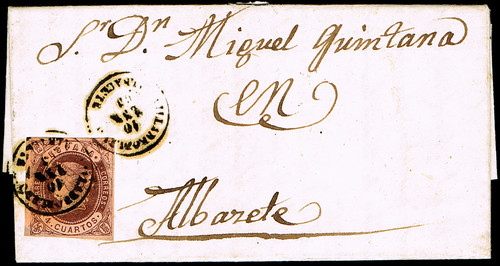 Sr. Dn. Miguel Quintana
en
Albazete
CORREOS
CUARTOS